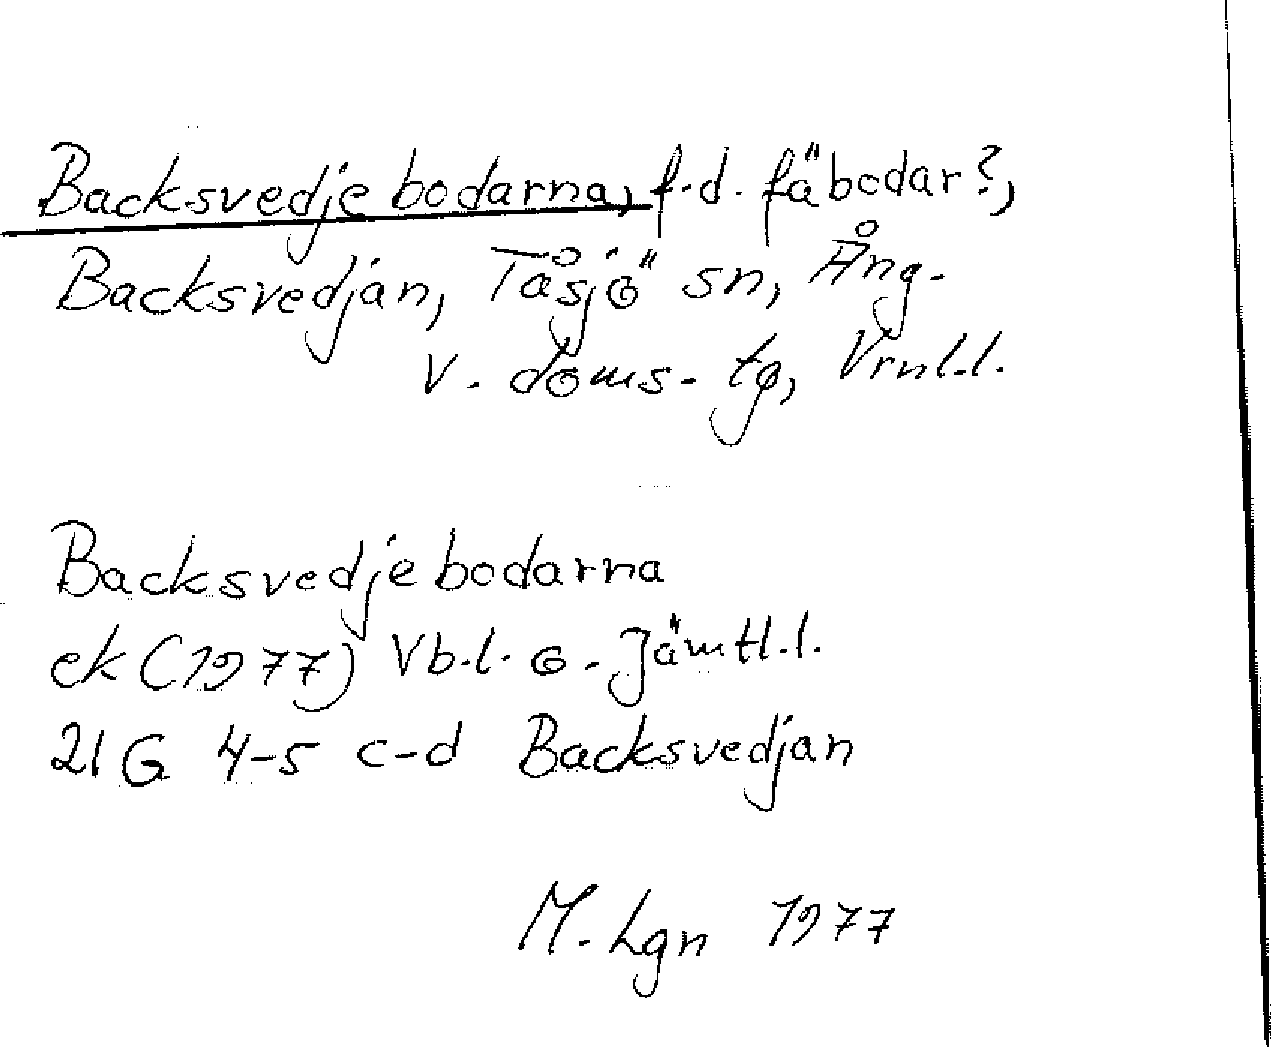 Backsvedjebodarna, f.d. fäbodar?,
Backsvedjan, Tåsjö sn, Ång.
v. doms. tg, Vrnl.l.
Backsvedjebodarna
ek (1977) Vb.l. o. Jämtl.l.
21 G 4-5 c-d Backsvedjan
M. Lgn 1977